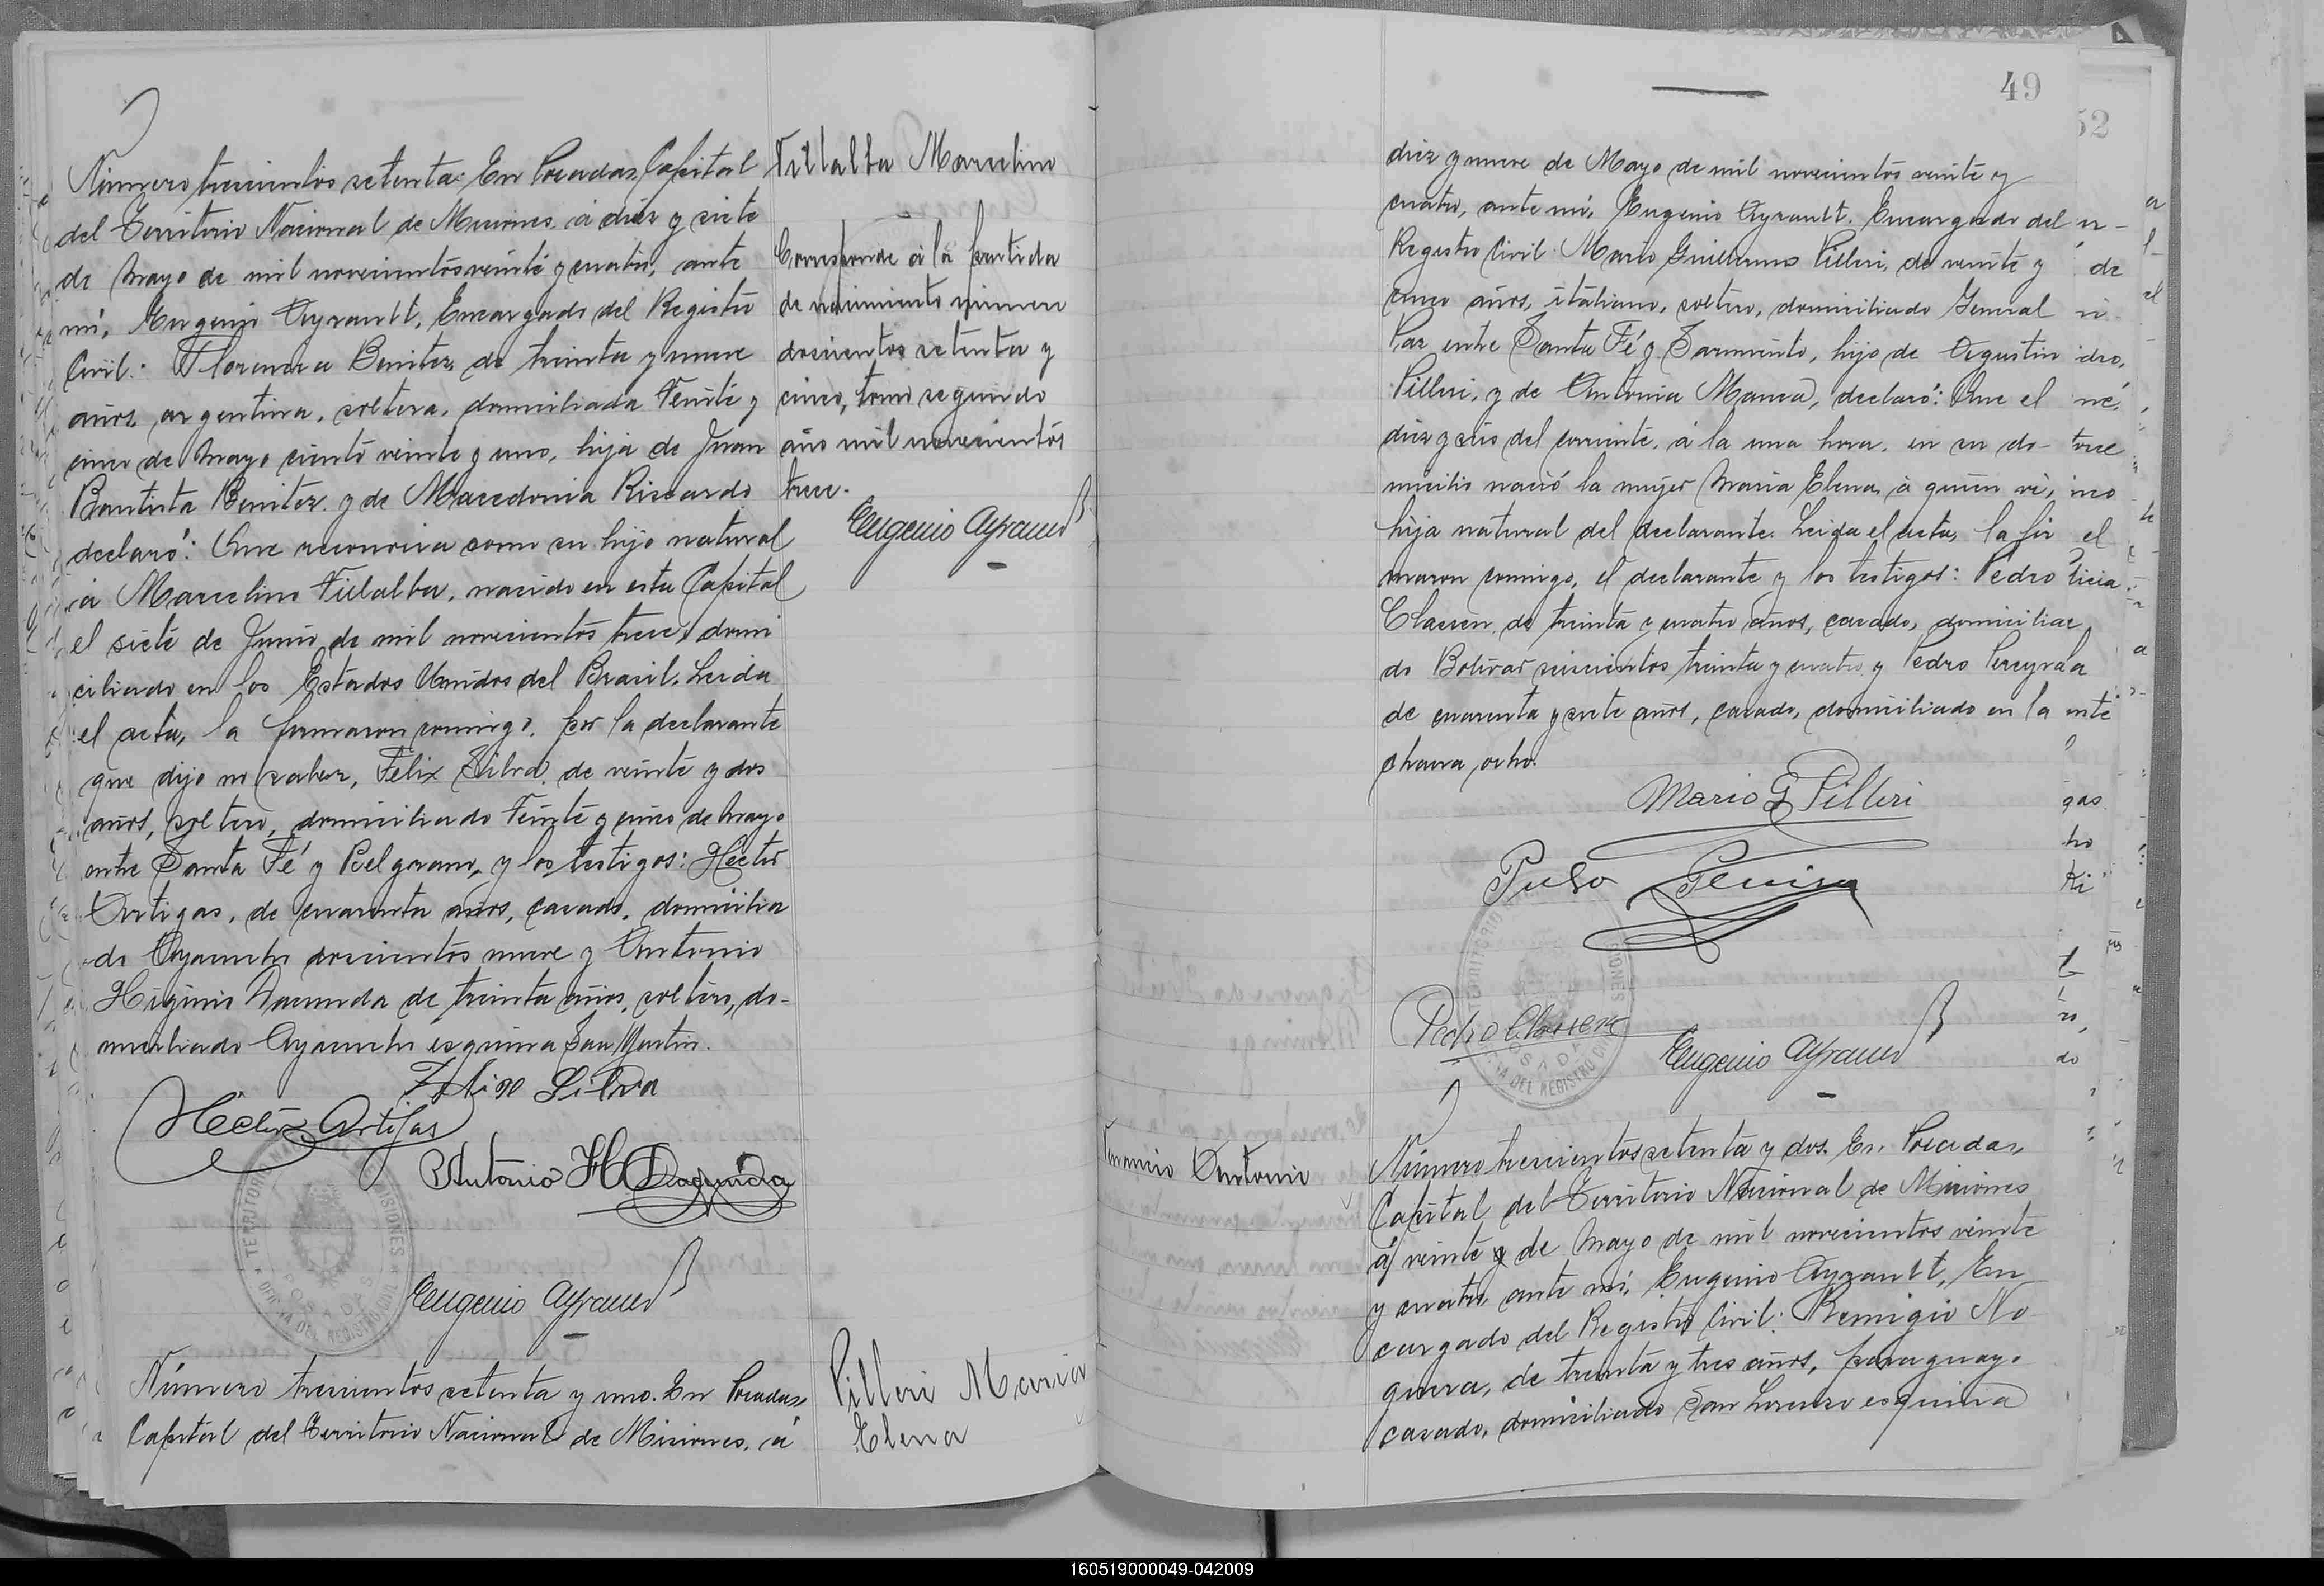 Número trescientos setenta: En Posadas, Capital
del Territorio Nacional de Misiones, á diez y siete
de Mayo de mil novecientos veinte y cuatro, ante
mí, Eugenio Ayrault, Encargado del Registro
Civil: Florencia Benitez, de treinta y nueve
años, argentina, soltera, domiciliada Veinte y
cinco de Mayo ciento veinte y uno, hija de Juan
Bautista Benitez y de Macedonia Ricardo
declaró: Que reconocia como su hijo natural
á Marcelino Villalba, nacido en esta Capital
el siete de Junio de mil novecientos trece, domi
ciliado en los Estados Unidos del Brasil. Leida
el acta, la firmaron conmigo, por la declarante
que dijo no saber, Felix Silva, de veinte y dos
años, soltero, domiciliado Veinte y cinco de Mayo
entre Santa Fé y Belgrano, y los testigos: Hector
Artigas, de cuarenta años, casado, domicilia
do Ayacucho doscientos nueve y Antonio
Higinio Dacunda de treinta años, soltero, do-
miciliado Ayacucho esquina San Martin.
Felix Silva
Hector Artigas
Antonio H Dacunda
TERRITORIO NACIONAL DE MISIONES
POSADAS
OFICINA DEL REGISTRO CIVIL
Eugenio Ayrault
Número trescientos setenta y uno. En Posadas,
Capital del Territorio Nacional de Misiones, á
Villalba Marcelino
Corresponde á la partida
de nacimiento número
doscientos setenta y
cinco, tomo segundo
año mil novecientos
trece.
Eugenio Ayrault
Pilleri Maria
Elena
49
52
diez y nueve de Mayo de mil novecientos veinte y
cuatro, ante mí, Eugenio Ayrault, Encargado del
Registro Civil: Mario Guillermo Pilleri, de veinte y
cinco años, italiano, soltero, domiciliado General
Paz entre Santa Fé y Sarmiento, hijo de Agustin
Pilleri, y de Antonia Manca, declaró: Que el
diez y seis del corriente, á la una hora, en su do-
micilio nació la mujer Maria Elena, á quien vi,
hija natural del declarante. Leida el acta, la fir
maron conmigo, el declarante y los testigos: Pedro
Classen, de treinta y cuatro años, casado, domicilia
do Bolivar seiscientos treinta y cuatro y Pedro Pereyra
de cuarenta y siete años, casado, domiciliado en la
chacra ocho.
Mario G Pilleri
Pedro Pereira
Pedro Classen
POSADAS
OFICINA DEL REGISTRO CIVIL
Eugenio Ayrault
Antonio
Número trescientos setenta y dos. En Posadas,
Capital del Territorio Nacional de Misiones
á veinte y de Mayo de mil novecientos veinte
y cuatro, ante mí, Eugenio Ayrault, En
cargado del Registro Civil: Remigio No
guera, de treinta y tres años, paraguayo
casado, domiciliado San Lorenzo esquina
160519000049-042009